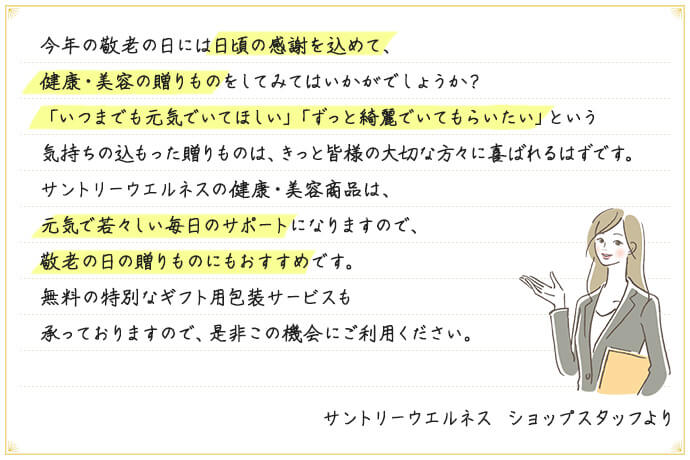 今年の敬老の日には日頃の感謝を込めて、
健康・美容の贈りものをしてみてはいかがでしょうか?
「いつまでも元気でいてほしい」「ずっと綺麗でいてもらいたい」という
気持ちの込もった贈りものは、きっと皆様の大切な方々に喜ばれるはずです。
サントリーウエルネスの健康・美容商品は、
元気で若々しい毎日のサポートになりますので、
敬老の日の贈りものにもおすすめです。
無料の特別なギフト用包装サービスも
承っておりますので、是非この機会にご利用ください。
サントリーウエルネス ショップスタッフより